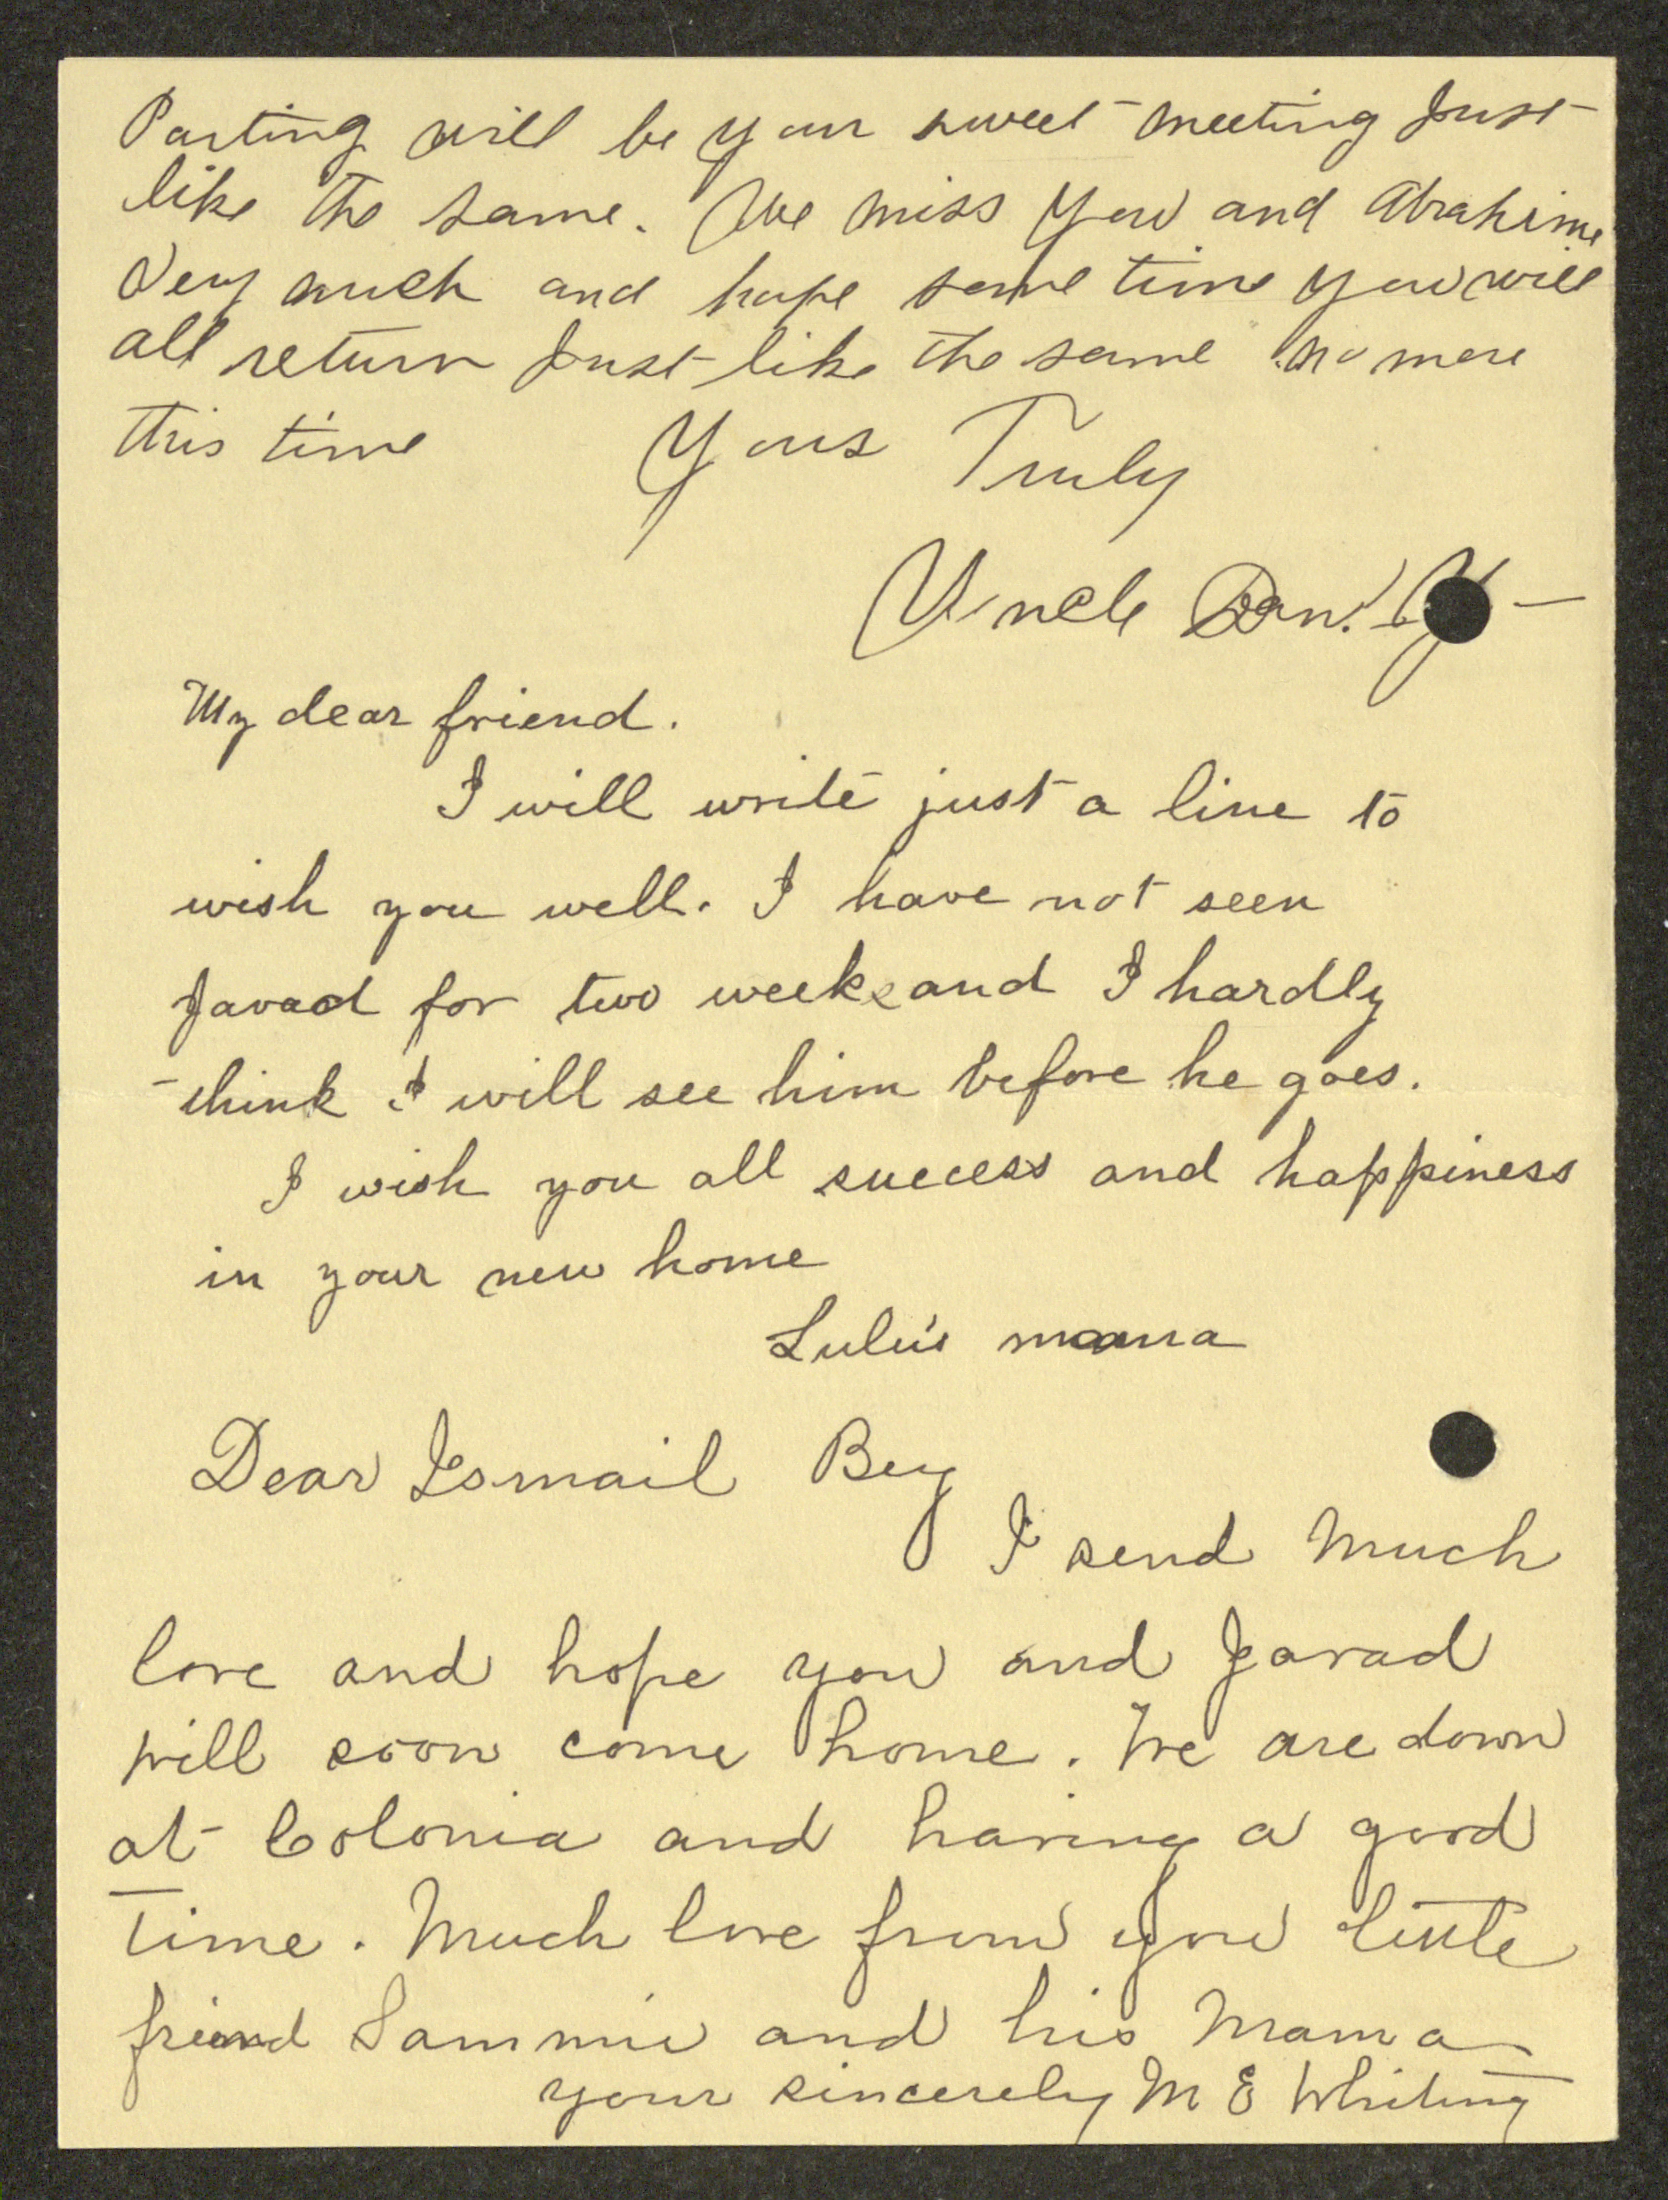 Parting will be your sweet meeting Just
like the same. We miss you and Abrahime
Very much and hope some time you will
all return Just like the same no more
this time Yours Truly
Uncle Dan.
My dear friend.
I will write just a line to
wish you well. I have not seen
Javad for two weeks and I hardly
think I will see him before he goes.
I wish you all success and happiness
in your new home
Lulu's mama
Dear Ismail Bey
I send much
love and hope you and Javad
will soon come home. We are down
at Colonia and having a good
time. Much love from your little
friend Sammie and his Mama
your sincerely M E Whiting